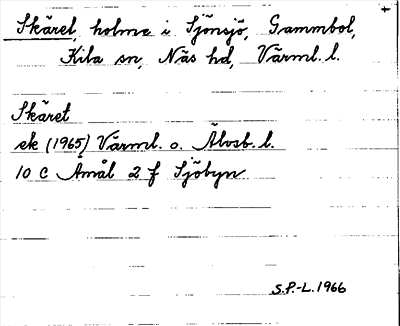 Skäret, holme i Sjönsjö, Gammbol,
Kila sn, Näs hd, Värml. l.
Skäret
ek (1965) Värml. o. Älvsb. l.
10 c Åmål 2 f Sjöbyn
S.P.-L. 1966